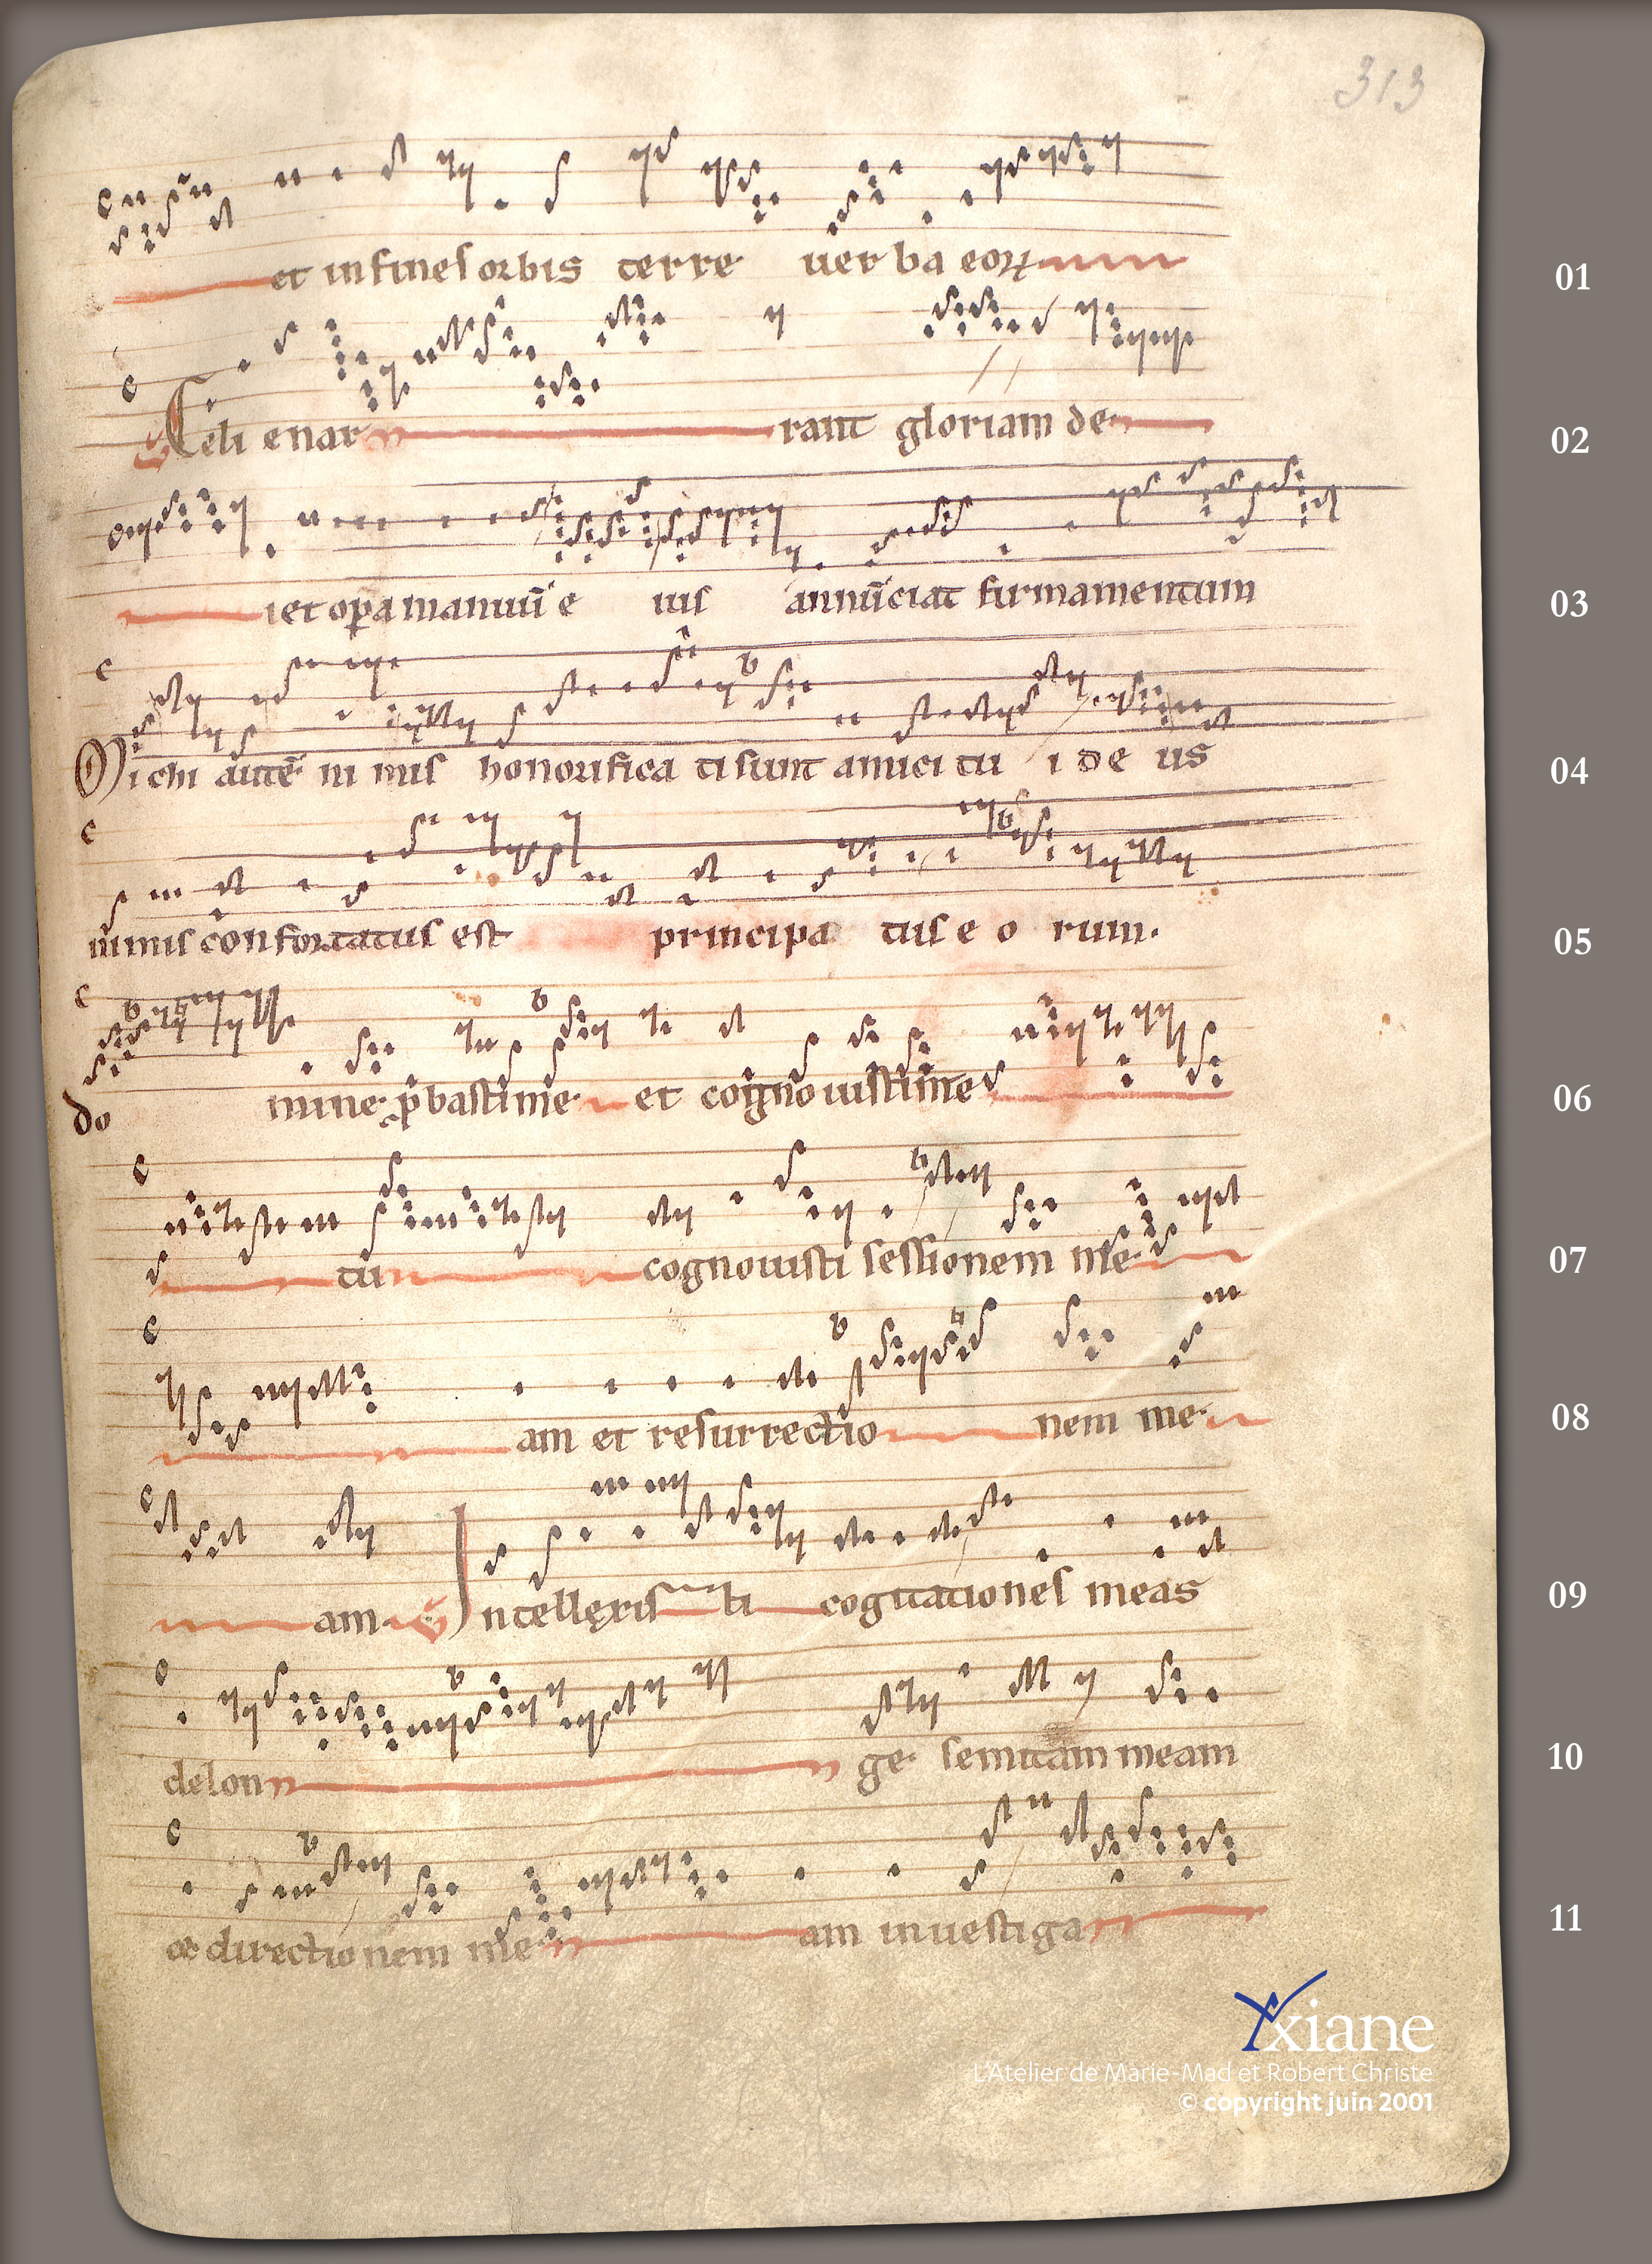 313
et in fines orbis terre uer ba eoꝝ 01
℣ Celi enar rant gloriam de 02
i et oꝑa manuū e ius annūciat firmamentum 03
Michi autē ni mis honorifica ti sunt amici tu i de us 04
nimis confortatus est principa tus e o rum. 05
do mine ꝓbasti me et cognouisti me 06
tu cognouisti sessionem me 07
am et resurrectio nem me 08
am. ℣ Intellexis ti cogitationes meas 09
de lon ge semitam meam 10
et directio nem me am inuestiga 11
Yxiane
L'Atelier de Marie-Mad et Robert Christe
© copyright juin 2001